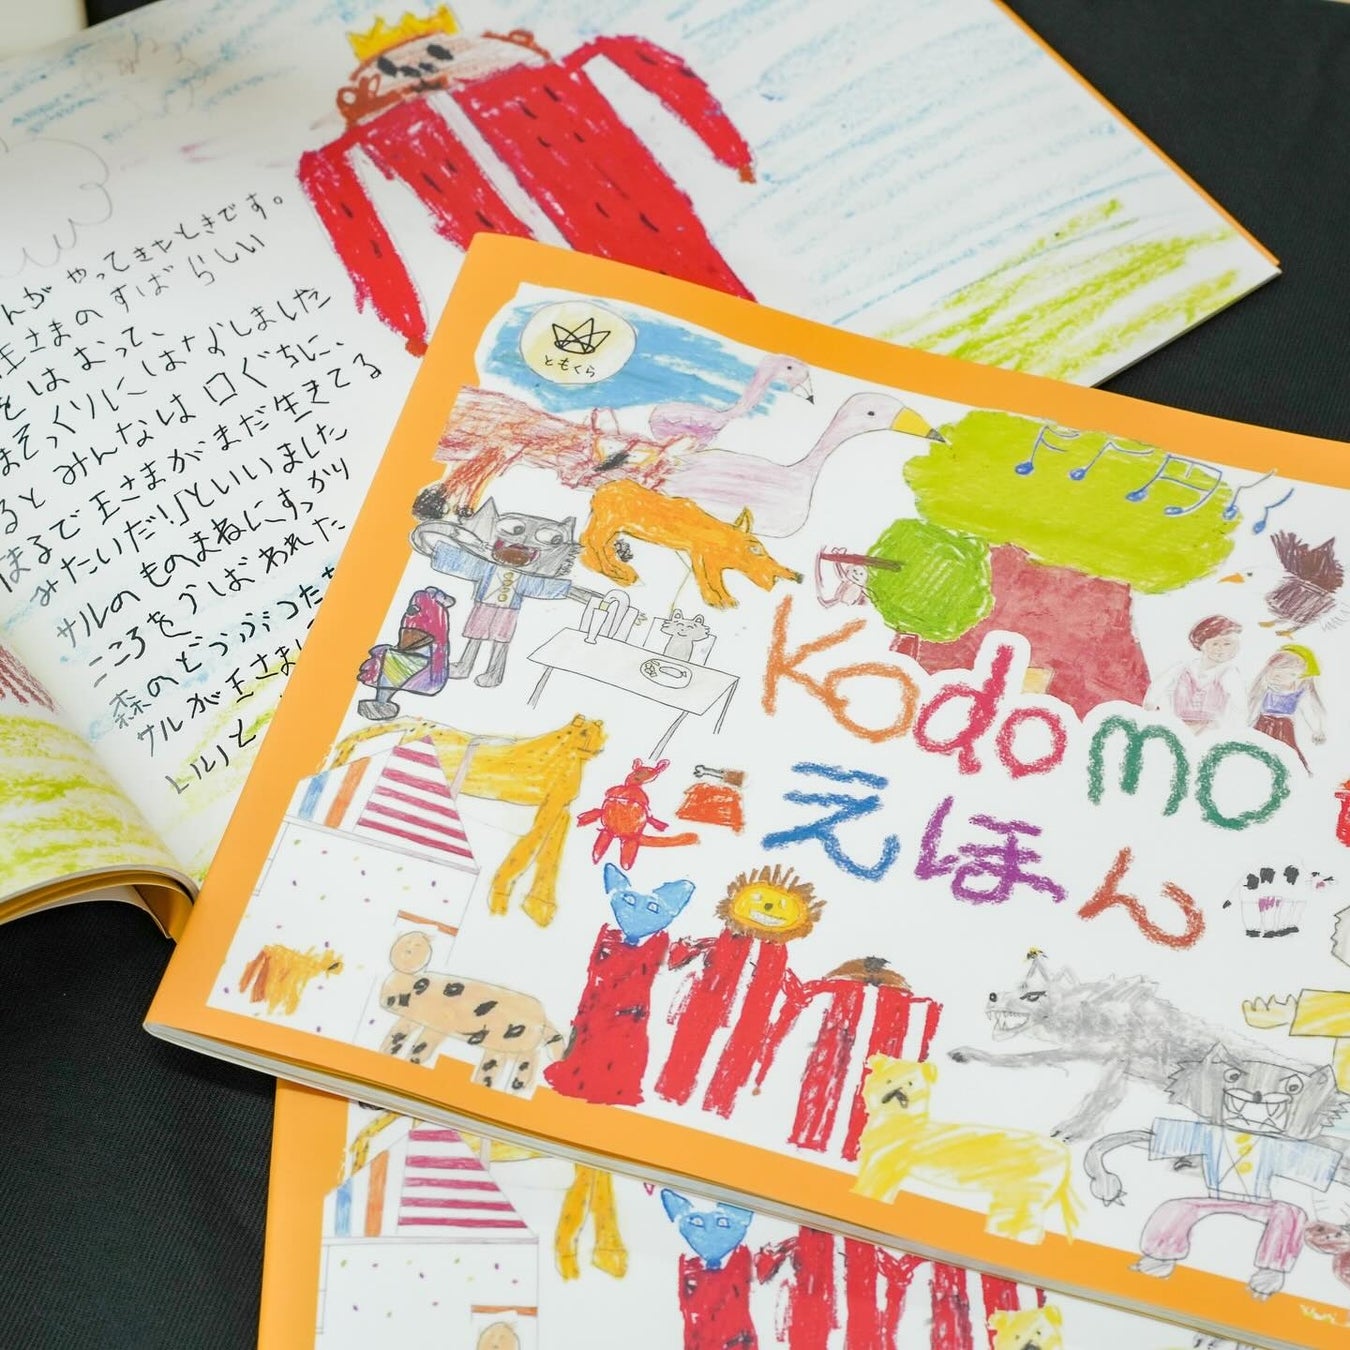 んが やってきたときです。
王さまの すばらしい
をはおって、
まそっくりに はなしました
ると みんなは 口ぐちに、
まるで王さまがまだ生きてる
みたいだ!」といいました
サルの ものまねにすっかり
こころを うばわれた
森のどうぶつた
サルが 王さま
いいと
ともくら
Kodomo
えほん